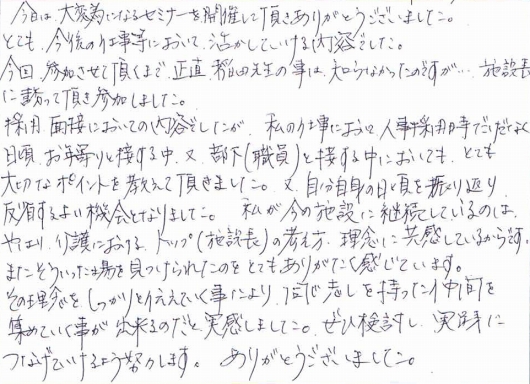 今日は、大変為になるセミナーを開催して頂きありがとうございました。
とても、今後の仕事等において、活かしていける内容でした。
今回、参加させて頂くまで、正直、稲田先生の事は、知らなかったのですが… 施設長
に誘って頂き参加しました。
採用、面接においての内容でしたが、私の仕事において、人事採用時でだけでなく
日頃、お年寄りと接する中、又、部下(職員)と接する中においても、とても
大切なポイントを教えて頂きました。又、自分自身の日頃を振り返り
反省するよい機会となりました。 私が今の施設に継続しているのは、
やはり、介護における、トップ(施設長)の考え方、理念に共感しているからです。
またそういった場を見つけられたのをとてもありがたく感じています。
その理念をしっかりと伝えていく事により、同じ志しを持った仲間を
集めていく事が出来るのだと実感しました。ぜひ検討し、実践に
つなげていけるよう努力します。 ありがとうございました。